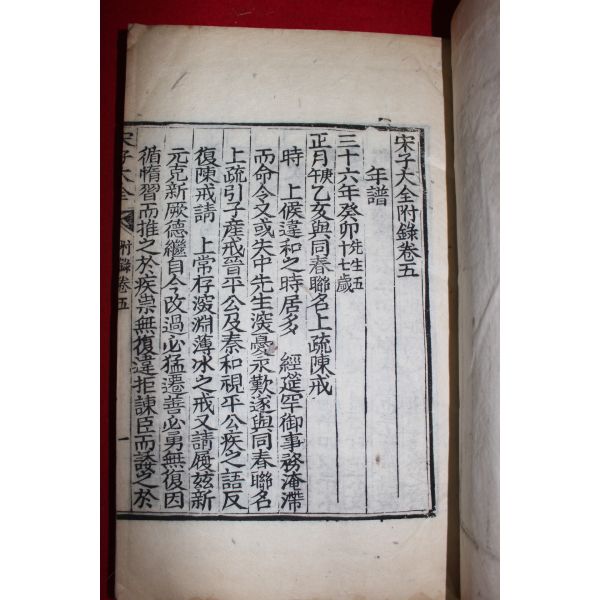 宋子大全附錄卷五
年譜
三十六年癸卯先生五十七歲
正月庚乙亥與同春聯名上疏陳戒
時 上候違和之時居多 經筵罕御事務淹滯
而命令又或失中先生深憂永歎遂與同春聯名
上疏引子産戒晉平公及秦和視平公疾之語反
復陳戒請 上常存深淵薄冰之戒又請履玆新
元克新厥德繼自今改過必猛遷善必勇無復因
循惰習而推之於疾祟無復違拒諫臣而諉之於
宋子大全 附錄卷五 一